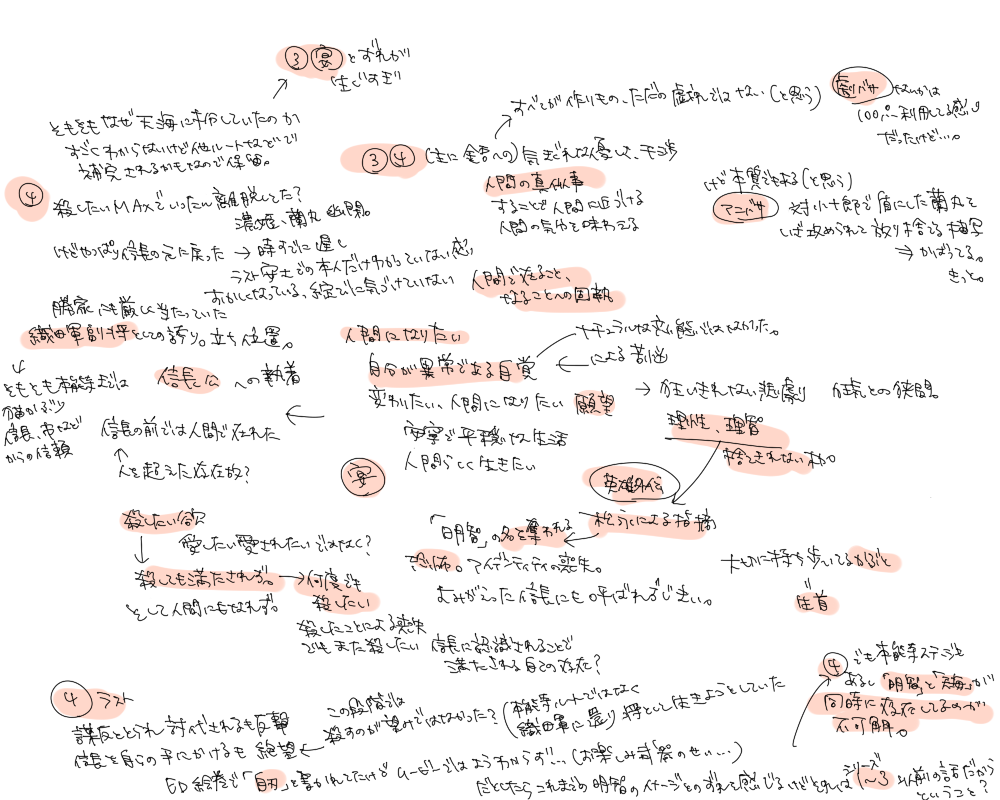 ③宴とずれが
生じすぎ
そもそもなぜ天海に扮していたのか
すごくわからないけど他ルートなどで
補完されるかもなので保留。
すべてが作りもの、ただの虚構ではない(と思う)
劇バサ
なんかは
100%利用してる感じ
だったけど…。
③④(主に金吾への)気まぐれな優しさ、モチ歩
人間の真似事
することで人間に近づける
人間の気分を味わえる
けど本質でもある(と思う)
アニバサ 対小十郎で盾にした蘭丸を
しば攻められて放り捨てる描写
⇒かばってる。
きっと。
④
殺したいMAXでいったん離脱してた?
濃姫・蘭丸も幽閉。
けどやっぱり信長の元に戻った→時すでに遅し
ラスト安土での本人だけわかっていない感じ
おかしくなっている、綻びに気づけていない
人間で在ること、
なることへの固執
勝家にも厳しく当たっていた
織田軍副将としての誇り。立ち位置。
↓
そもそも本能寺までは
猫かぶり
信長、市などからの信頼
信長公への執着
信長の前では人間で在れた
↑
人を超えた存在故?
人間になりたい
自分が異常である自覚
変わりたい、人間になりたい願望
安寧で平穏な生活
人間らしく生きたい
ナチュラルな変態ではなかった。
←による苦悩
→狂いきれない悲劇 狂気との狭間。
理性、理智
捨てきれないわ。
宴
英雄外伝
松永による指摘
「明智」の名を奪われる
恐怖。アイデンティティの喪失。
よみがえった信長にも呼ばれるじまい。
大切に持ち歩いてるかぶと
=
生首
殺したい欲
↓
愛したい愛されたいではなく?
殺しても満たされず。→何度でも
殺したい
として人間にもなれず。
殺したことによる喪失
でもまた殺したい
信長に認識されることで
満たされる自己の存在?
④でも本能寺ステージも
あるし「明智」と「天海」が
同時に存在してるのが
不可解。
④ラスト
謀反ととられ討伐されるも反撃
信長を自らの手にかけるも絶望
この段階では
殺すのが望みではなかった?
(本能寺ルートではなく
織田軍に戻り将として生きようとしていた
ED絵巻で「自刃」と書かれてたけどムービーではようわからず!!…(お楽しみ武器のせい…)
だとしたらこれまでの明智のイメージとのずれを感じるけどそれはシリーズ1~3以前の話だから
ということ?